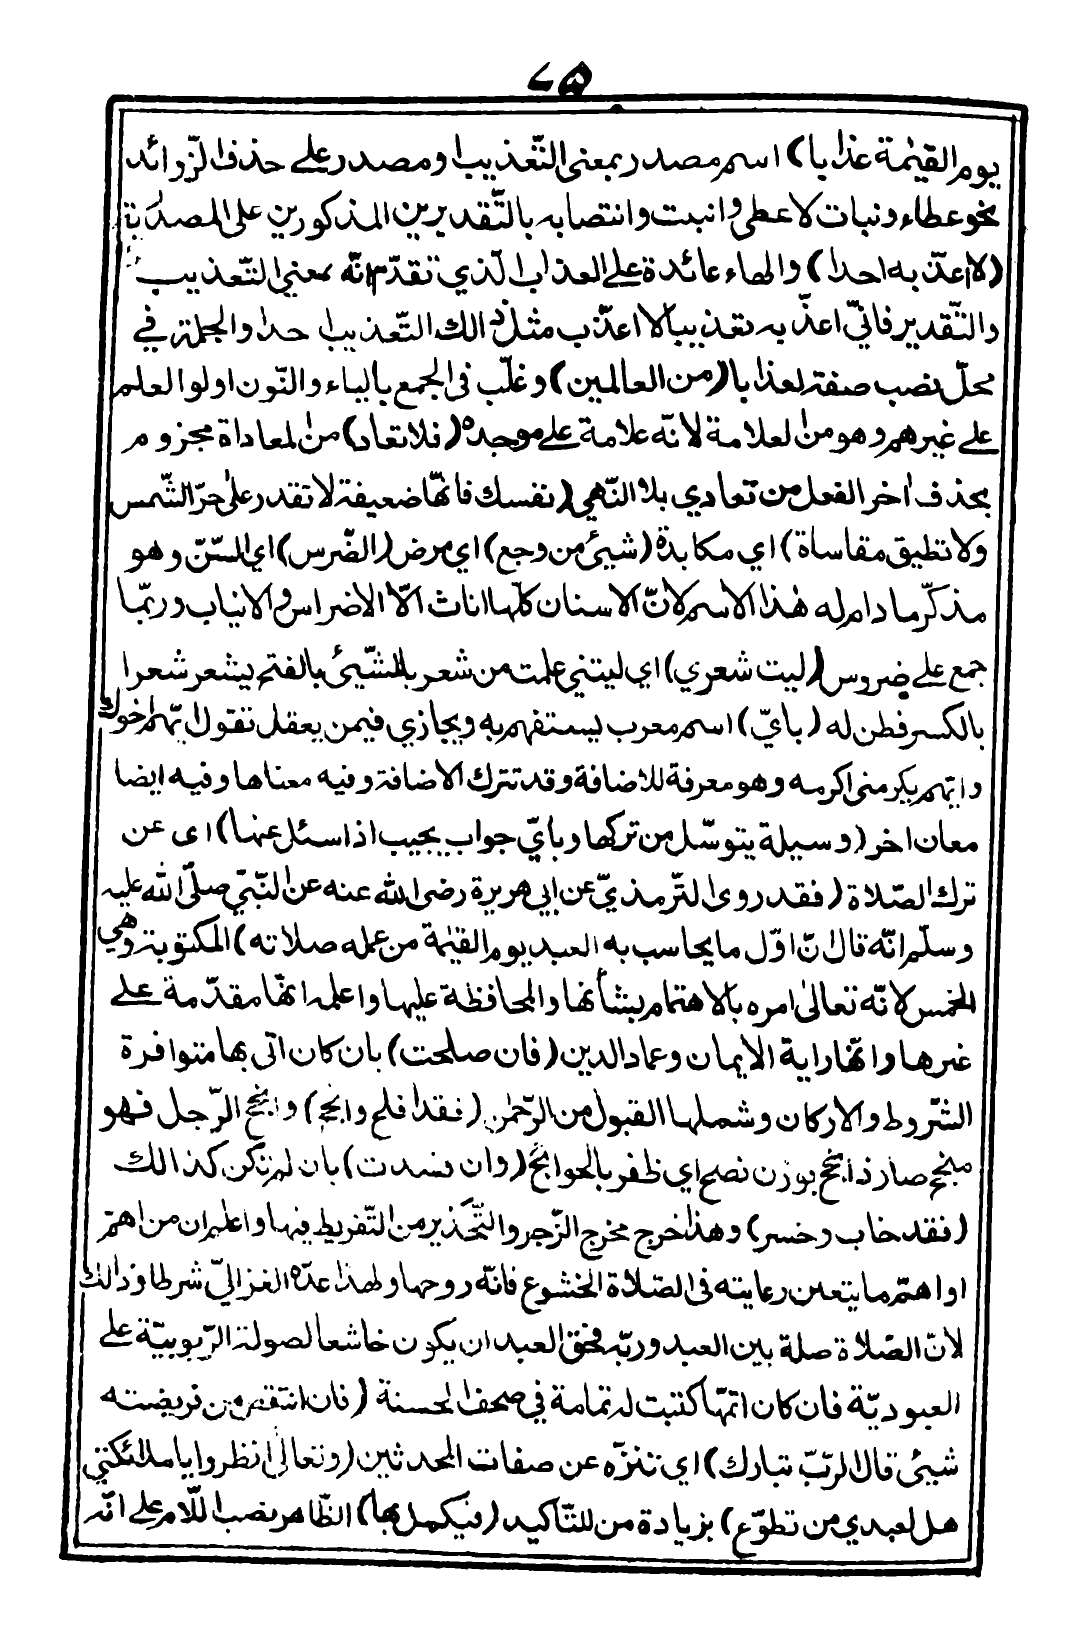 ٧٥
يوم القيٰمة عذابا) اسم مصدر بمعنى التّعذيب او مصدر على حذف الزّوائد
نحو عطاء ونبات لاعطى وانبت وانتصابه بالتّقديرين المذكورين على المصدريّة
(لا اعذّبه احدا) والهاء عائدة على العذاب الّذي تقدّم انّه بمعني التّعذيب
والتّقدير فانّي اعذّبه تعذيبا لا اعذّب مثل ذالك التّعذيب احدا والجملة في
محلّ نصب صفة لعذابا (من العالمين) وغلّب فى الجمع بالياء والنّون اولوا العلم
على غيرهم وهو من العلامة لانّه علامة على موجده (فلا تعاد) من المعاداة مجزوم
بحذف اخر الفعل من تعادي بلا النّهي (نفسك فانّها ضعيفة لا تقدر على حرّ الشّمس
ولا تطيق مقاساة) اي مكابدة (شيئ من وجع) اي مرض (الضّرس) اي السّنّ وهو
مذكّر ما دام له هٰذا الاسم لانّ الاسنان كلّها اناث الّا الاضراس والانياب وربّما
جمع على ضروس (ليت شعري) اي ليتني علمت من شعر بالشّيئ بالفتح يشعر شعرا
بالكسر فطن له (بايّ) اسم معرب يستفهم به ويجازي فيمن يعقل تقول ايّهم اخوك
وايّهم يكرمنى اكرمه وهو معرفة للاضافة وقد تترك الاضافة وفيه معناها وفيه ايضا
معان اخر (وسيلة يتوسّل من تركها وبايّ جواب يجيب اذا سئل عنها) اى عن
ترك الصّلاة (فقد روى التّرمذيّ عن ابي هريرة رضى الله عنه عن النّبيّ صلّى الله عليه
وسلّم انّه قال انّ اوّل ما يحاسب به العبد يوم القيٰمة من عمله صلاته) المكتوبة وهي
الخمس لانّه تعالىٰ امره بالاهتمام بشأنها والمحافظة عليها واعلمه انّها مقدّمة على
غيرها وانّها راية الايمان وعماد الدين (فان صلحت) بان كان اتى بها متوافرة
الشّروط والاركان وشملها القبول من الرّحمٰن (فقد افلح وانجح) وانجح الرّجل فهو
منجح صار ذا نجح بوزن نصح اي ظفر بالحوائج (وان فسدت) بان لم تكن كذالك
(فقد خاب وخسر) وهذا خرج مخرج الزّجر والتّحذير من التّفريط فيها واعلم ان من اهمّ
او اهمّ ما يتعين رعايته فى الصّلاة الخشوع فانّه روحها ولهذا عدّه الغزاليّ شرطا وذالك
لانّ الصّلاة صلة بين العبد وربّه فحق العبد ان يكون خاشعا لصولة الرّبوبيّة على
العبوديّة فان كان اتمّها كتبت له تمامة في صحف الحسنة (فان انتقص من فريضته
شيئ قال الرّبّ تبارك) اي تنزّه عن صفات المحدثين (وتعالىٰ انظروا يا ملائكتي
هل لعبدي من تطوّع) بزيادة من للتّأكيد (فيكمل بها) الظّاهر نصب اللّام على انّه